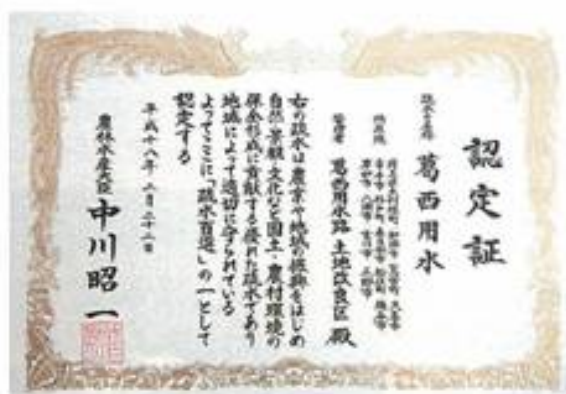 認定証
疏水の名称
葛西用水
所在地
管理者
葛西用水路土地改良区殿
右の疏水は農業や地域の振興をはじめ
自然・景観・文化など国土・農村環境の
保全形成に貢献する優れた疏水であり
地域によって適切に守られている
よってここに「疏水百選」の一として
認定する
平成十八年二月二十二日
農林水産大臣
中川昭一